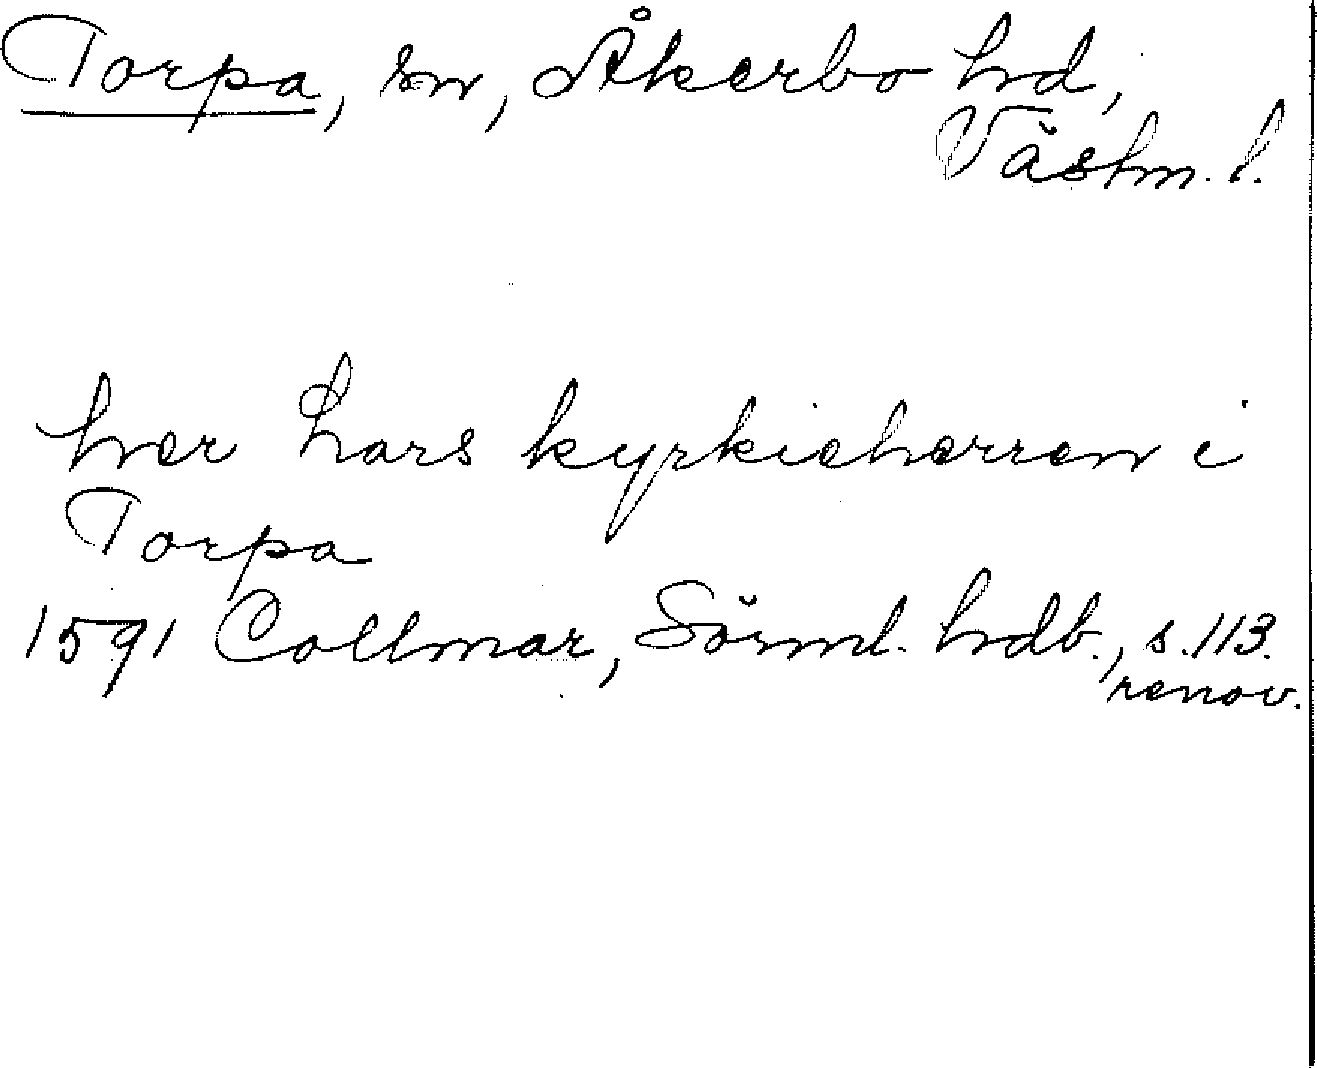 Torpa, sn, Åkerbo hd,
Västm. l.
her Lars kyrkieherren i
Torpa
1591 Collmar, Sörml. hdb., s. 113.
renov.